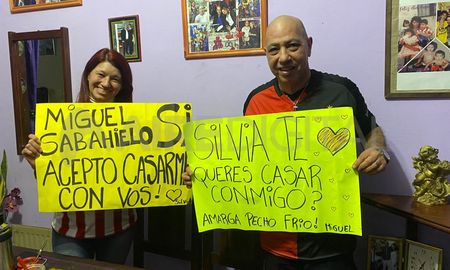 MIGUEL
SABAHIELO SI
ACEPTO CASARME
CON VOS!
SILVIA TE
QUERES CASAR
CONMIGO?
AMARGA PECHO FRIO!
MIGUEL